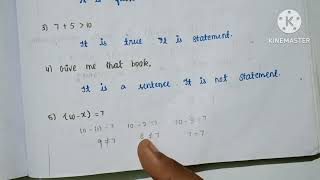 3) 7 + 5 > 10
It is true It is statement.
4) Give me that book.
It is a sentence It is not statement.
5) (10 - x) = 7
10 - 3 = 7
9 ≠ 7
8 ≠ 7
7 = 7
KINEMASTER